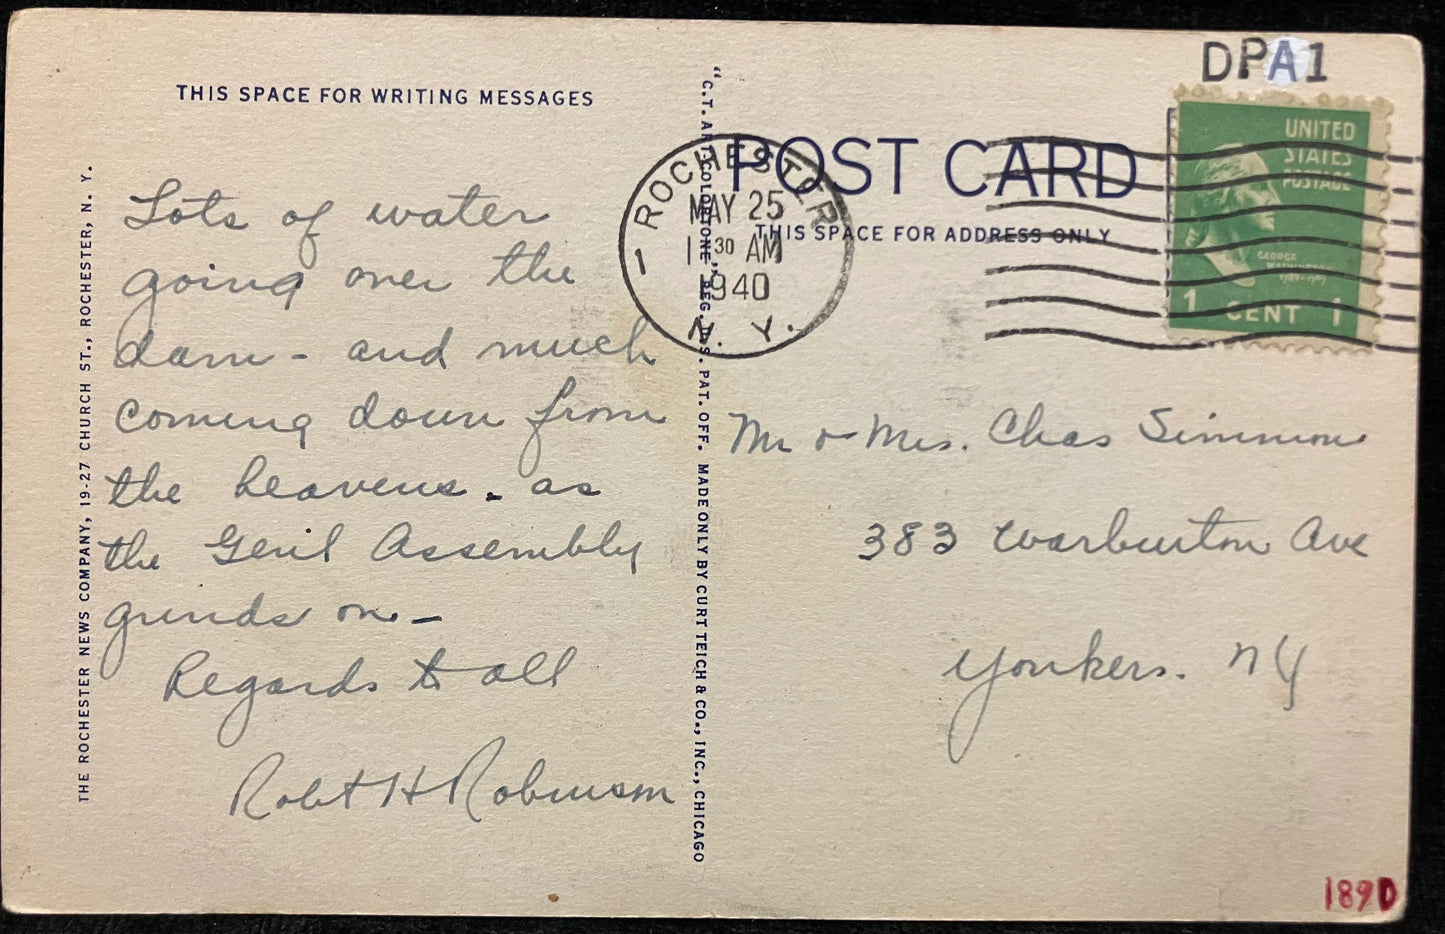 DPA1
THIS SPACE FOR WRITING MESSAGES
POST CARD
THIS SPACE FOR ADDRESS ONLY
ROCHESTER
MAY 25
30 AM
1940
N. Y.
1
UNITED
STATES
POSTAGE
GEORGE
WASHINGTON
1789-1797
1 CENT 1
Lots of water
going over the
dam - and much
coming down from
the heavens - as
the Gen'l Assembly
grinds on -
Regards to all
Robt H Robinson
Mr & Mrs. Chas Simmon
383 Warburton Ave
Yonkers. NY
THE ROCHESTER NEWS COMPANY, 19-27 CHURCH ST., ROCHESTER, N. Y.
"C.T. ART-COLORTONE" REG. U.S. PAT. OFF. MADE ONLY BY CURT TEICH & CO., INC., CHICAGO
189D